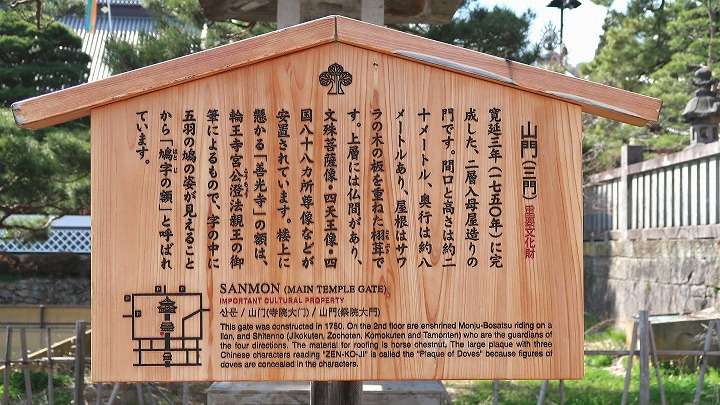 山門(三門) 重要文化財
寛延三年(一七五〇年)に完
成した、二層入母屋造りの
門です。間口と高さは約二
十メートル、奥行は約八
メートルあり、屋根はサワ
ラの木の板を重ねた栩葺で
す。上層には仏間があり、
文殊菩薩像・四天王像・四
国八十八カ所尊像などが
安置されています。楼上に
懸かる「善光寺」の額は、
輪王寺宮公澄法親王の御
筆によるもので、字の中に
五羽の鳩の姿が見えること
から「鳩字の額」と呼ばれ
ています。
SANMON (MAIN TEMPLE GATE)
IMPORTANT CULTURAL PROPERTY
산문 / 山门(寺院大门) / 山門(祭院大門)
This gate was constructed in 1750. On the 2nd floor are enshrined Monju-Bosatsu riding on a
lion, and Shitenno (Jikokuten, Zochoten, Komokuten and Tamonten) who are the guardians of
the four directions. The material for roofing is horse chestnut. The large plaque with three
Chinese characters reading "ZEN-KO-JI" is called the "Plaque of Doves" because figures of
doves are concealed in the characters.